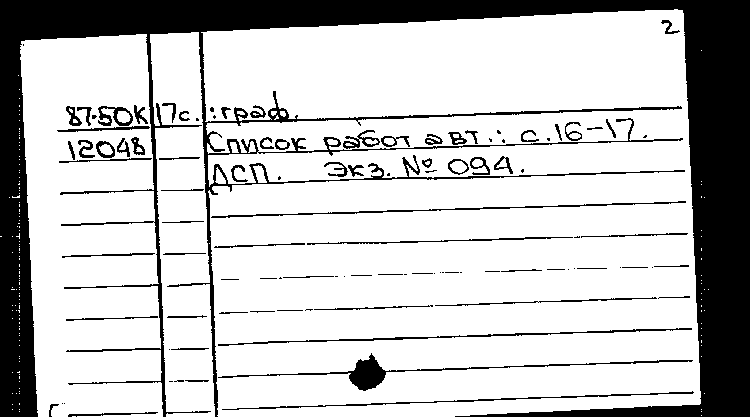 2
87-50К 17с. :граф.
12048 Список работ авт.: с.16-17.
ДСП. Экз. № 094.